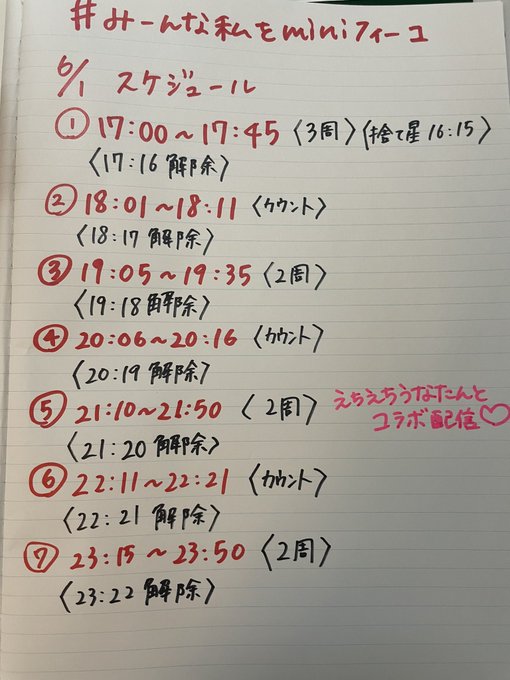 #みーんな私をminiフィーユ
6/1 スケジュール
① 17:00~17:45 〈3周〉(捨て星16:15〉
〈17:16 解除〉
② 18:01~18:11 〈カウント〉
〈18:17 解除〉
③ 19:05~19:35 〈2周〉
〈19:18 解除〉
④ 20:06~20:16 〈カウント〉
〈20:19 解除〉
⑤ 21:10~21:50 〈2周〉 えちえちうなたんと
コラボ配信♡
〈21:20 解除〉
⑥ 22:11~22:21 〈カウント〉
〈22:21 解除〉
⑦ 23:15~23:50 〈2周〉
〈23:22 解除〉